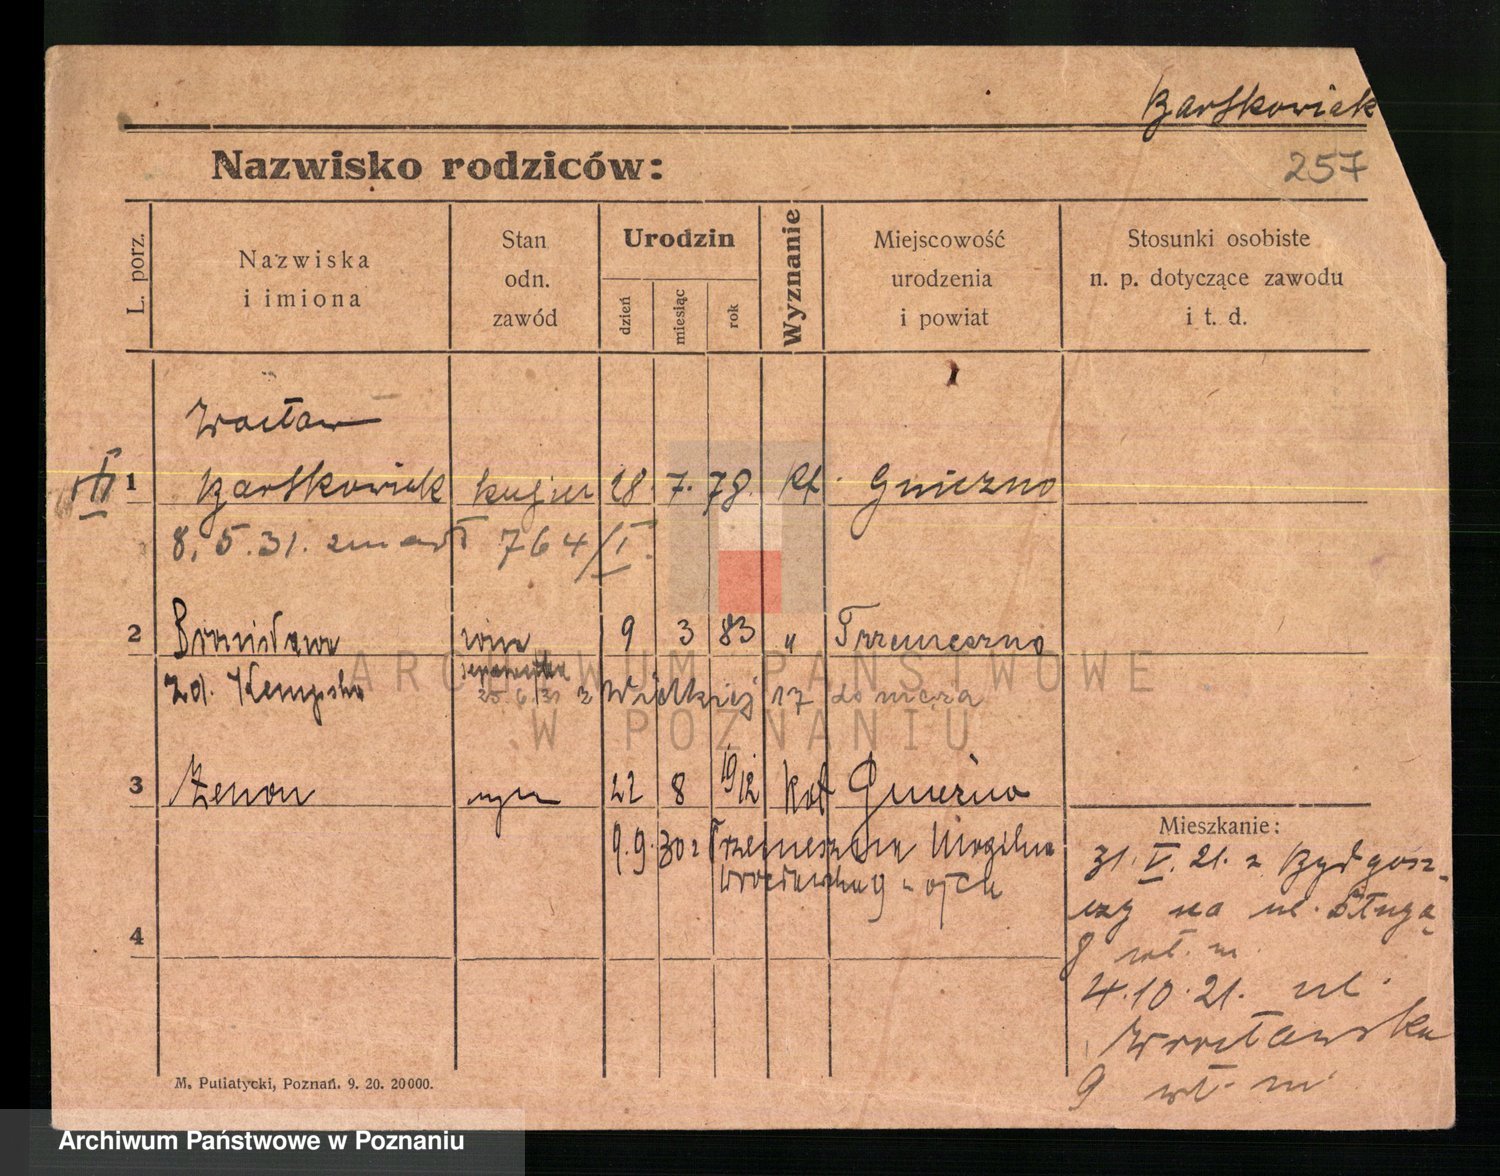 Bartkowiak
Nazwisko rodziców:
257
L. porz.
Nazwiska
i imiona
Stan
odn.
zawód
Urodzin
dzień
miesiąc
rok
Wyznanie
Miejscowość
urodzenia
i powiat
Stosunki osobiste
n. p. dotyczące zawodu
i t. d.
Wacław
1 Bartkowiak kupiec 28. 7. 78. kt. Gniezno
8. 5. 31. zmarł 764/I.
2 Bronisława 9 3 83 „ Trzemeszno
zd. Kempska
25.6.31 z Wielkiej 17 do męża
3 Zenon syn 22 8 1912 kat Gniezno
9.9.30 z Trzemeszna Mogilno
Wrocławska 9 u ojca
4
Mieszkanie:
31. V. 21. z Bydgosz-
czy na ul. Długą
8 wł. m.
4.10.21. ul.
Wrocławska
9 wł. m.
M. Putiatycki, Poznań. 9. 20. 20000.
ARCHIWUM PAŃSTWOWE
W POZNANIU
Archiwum Państwowe w Poznaniu